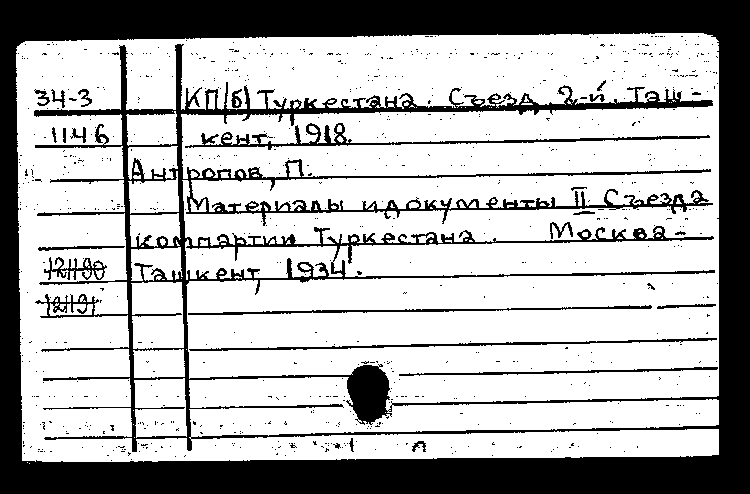 34-3 КП(б) Туркестана. Съезд, 2-й. Таш-
1146 кент, 1918.
Антропов, П.
Материалы и документы II Съезда
компартии Туркестана. Москва-
Ташкент, 1934.